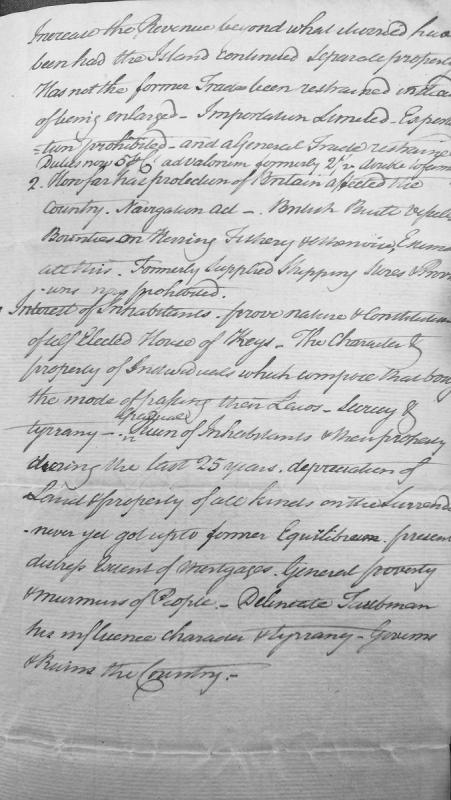 Increase the Revenue beyond what it would have
been had the Island Continued Separate property
Has not the former Trade been restrained instead
of being enlarged - Importation Limited - Exporta
=tion prohibited - and a General Trade restrained
Duties now 5 ad valorem formerly 2½
2. How far has protection of Britain affected the
Country. Navigation act - British Built vessels
Bounties on Herring Fishery &
all this. Formerly Supplied Shipping Stores & Provi
-sions now prohibited.
Interest of Inhabitants - prove nature & Constitution
of self Elected House of Keys - The Character &
property of Individuals which compose that body
the mode of passing their Laws - Secrecy &
tyranny - gradual Ruin of Inhabitants & their property
during the last 25 years. depreciation of
Land & property of all kinds on the Surrender
- never yet got up to former Equilibrium. present
distress Extent of Mortgages. General poverty
& murmurs of People. - Delineate Taubman
his influence character & tyranny - Governs
& Ruins the Country. -